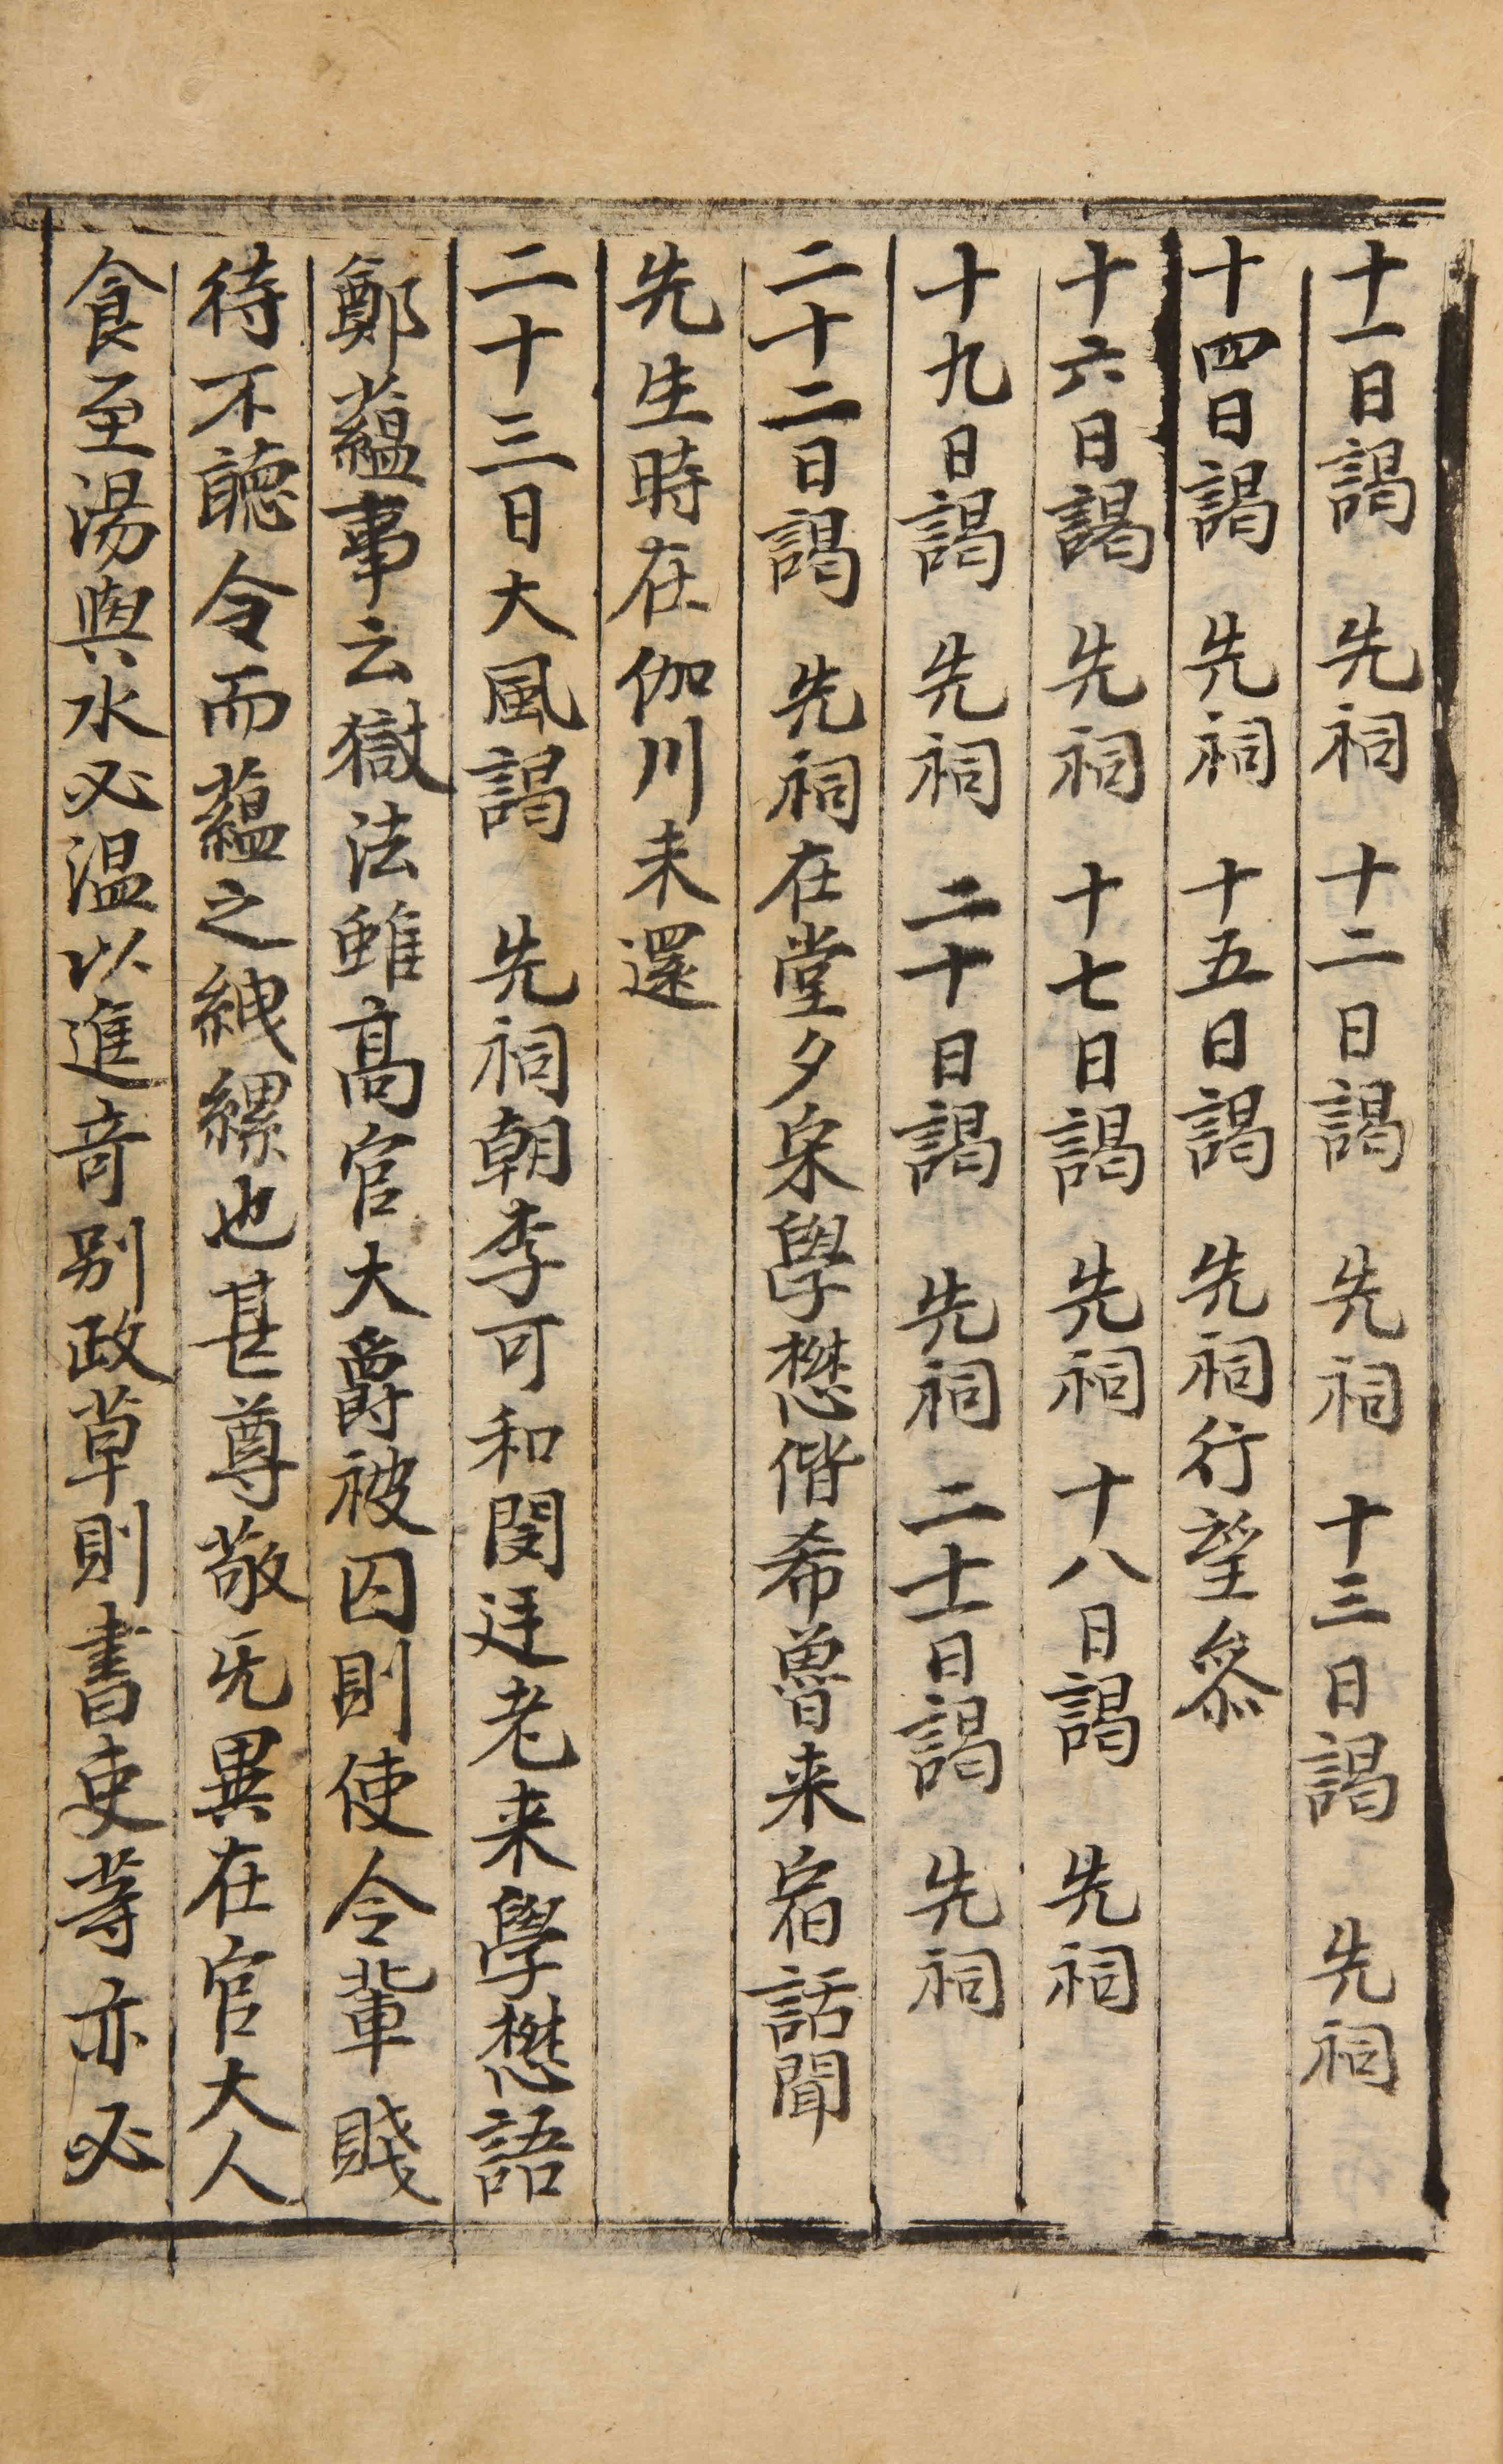 十一日謁　先祠　十二日謁　先祠　十三日謁　先祠
十四日謁　先祠　十五日謁　先祠行望叅
十六日謁　先祠　十七日謁　先祠　十八日謁　先祠
十九日謁　先祠　二十日謁　先祠　二十一日謁　先祠
二十二日謁　先祠在堂夕宋學懋偕希魯来宿話聞
先生時在伽川未還
二十三日大風謁　先祠朝李可和閔廷老来學懋語
鄭蘊事云獄法雖高官大爵被囚則使令輩賤
待不聽令而蘊之縲也甚尊敬旡異在官大人
食至湯與水必温以進奇别政草則書吏等亦必